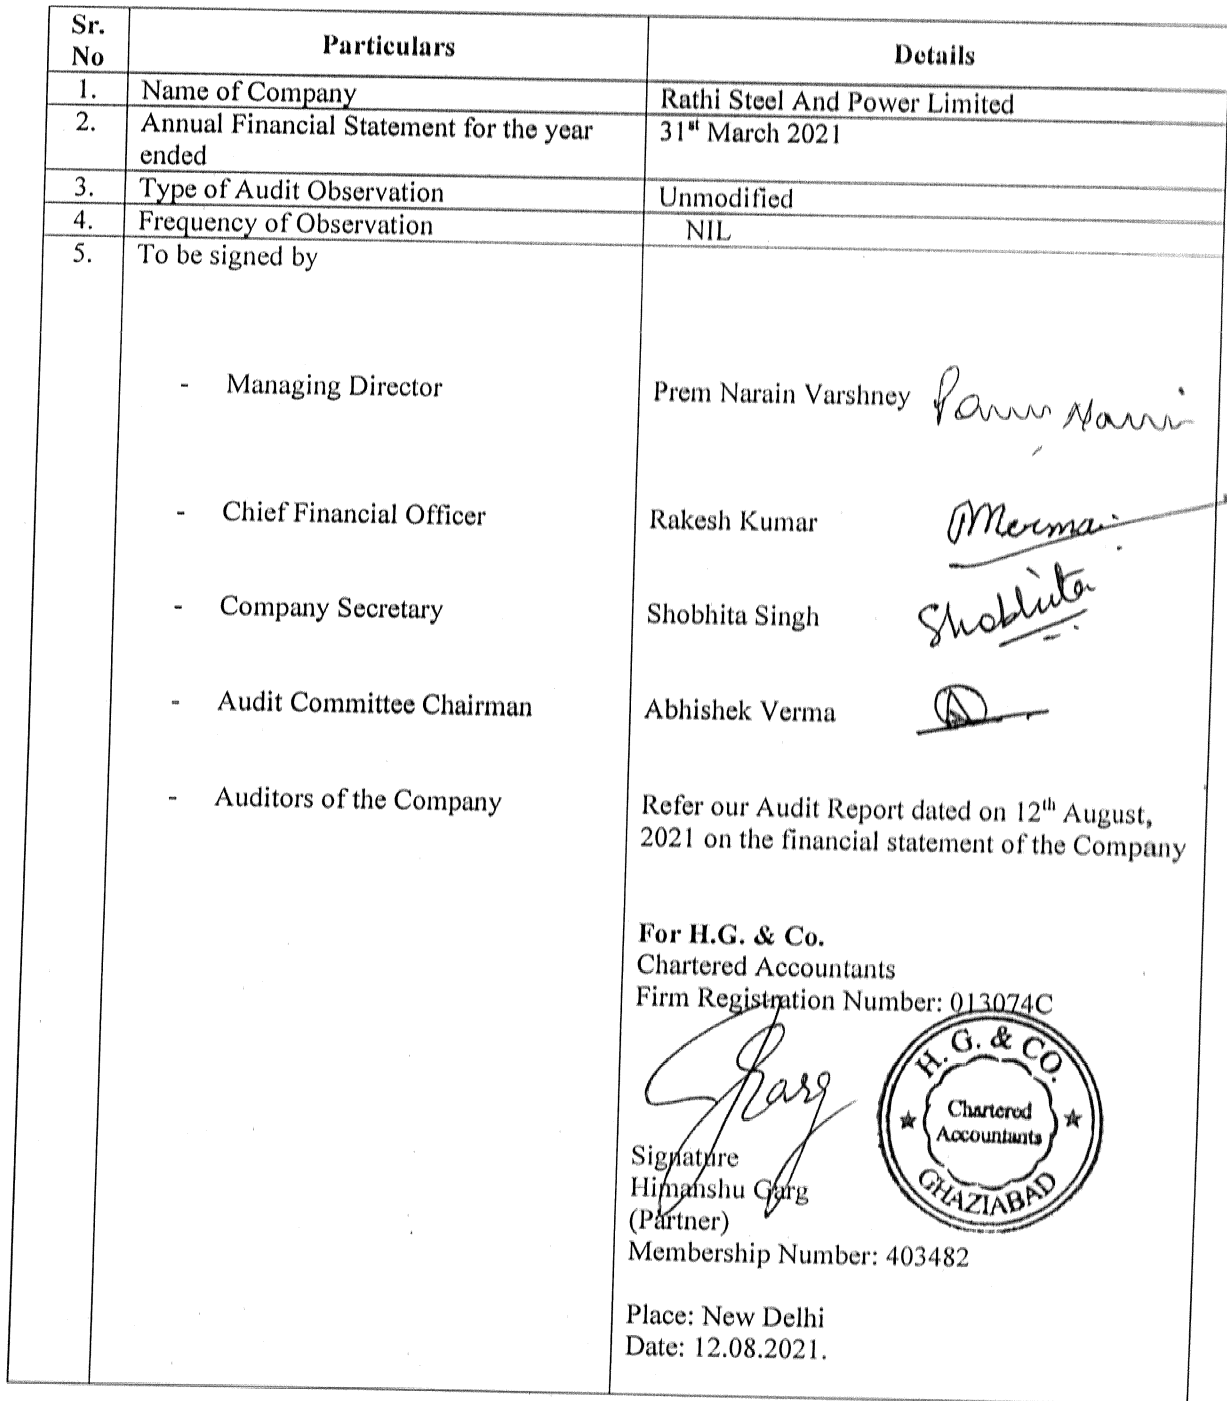 Sr.
No
Particulars
Details
1.
Name of Company
Rathi Steel And Power Limited
2.
Annual Financial Statement for the year
ended
31st March 2021
3.
Type of Audit Observation
Unmodified
4.
Frequency of Observation
NIL
5.
To be signed by
- Managing Director
Prem Narain Varshney
- Chief Financial Officer
Rakesh Kumar
- Company Secretary
Shobhita Singh
Shobhita
- Audit Committee Chairman
Abhishek Verma
- Auditors of the Company
Refer our Audit Report dated on 12th August,
2021 on the financial statement of the Company
For H.G. & Co.
Chartered Accountants
Firm Registration Number: 013074C
H. G. & CO.
Chartered
Accountants
GHAZIABAD
Signature
Himanshu Garg
(Partner)
Membership Number: 403482
Place: New Delhi
Date: 12.08.2021.